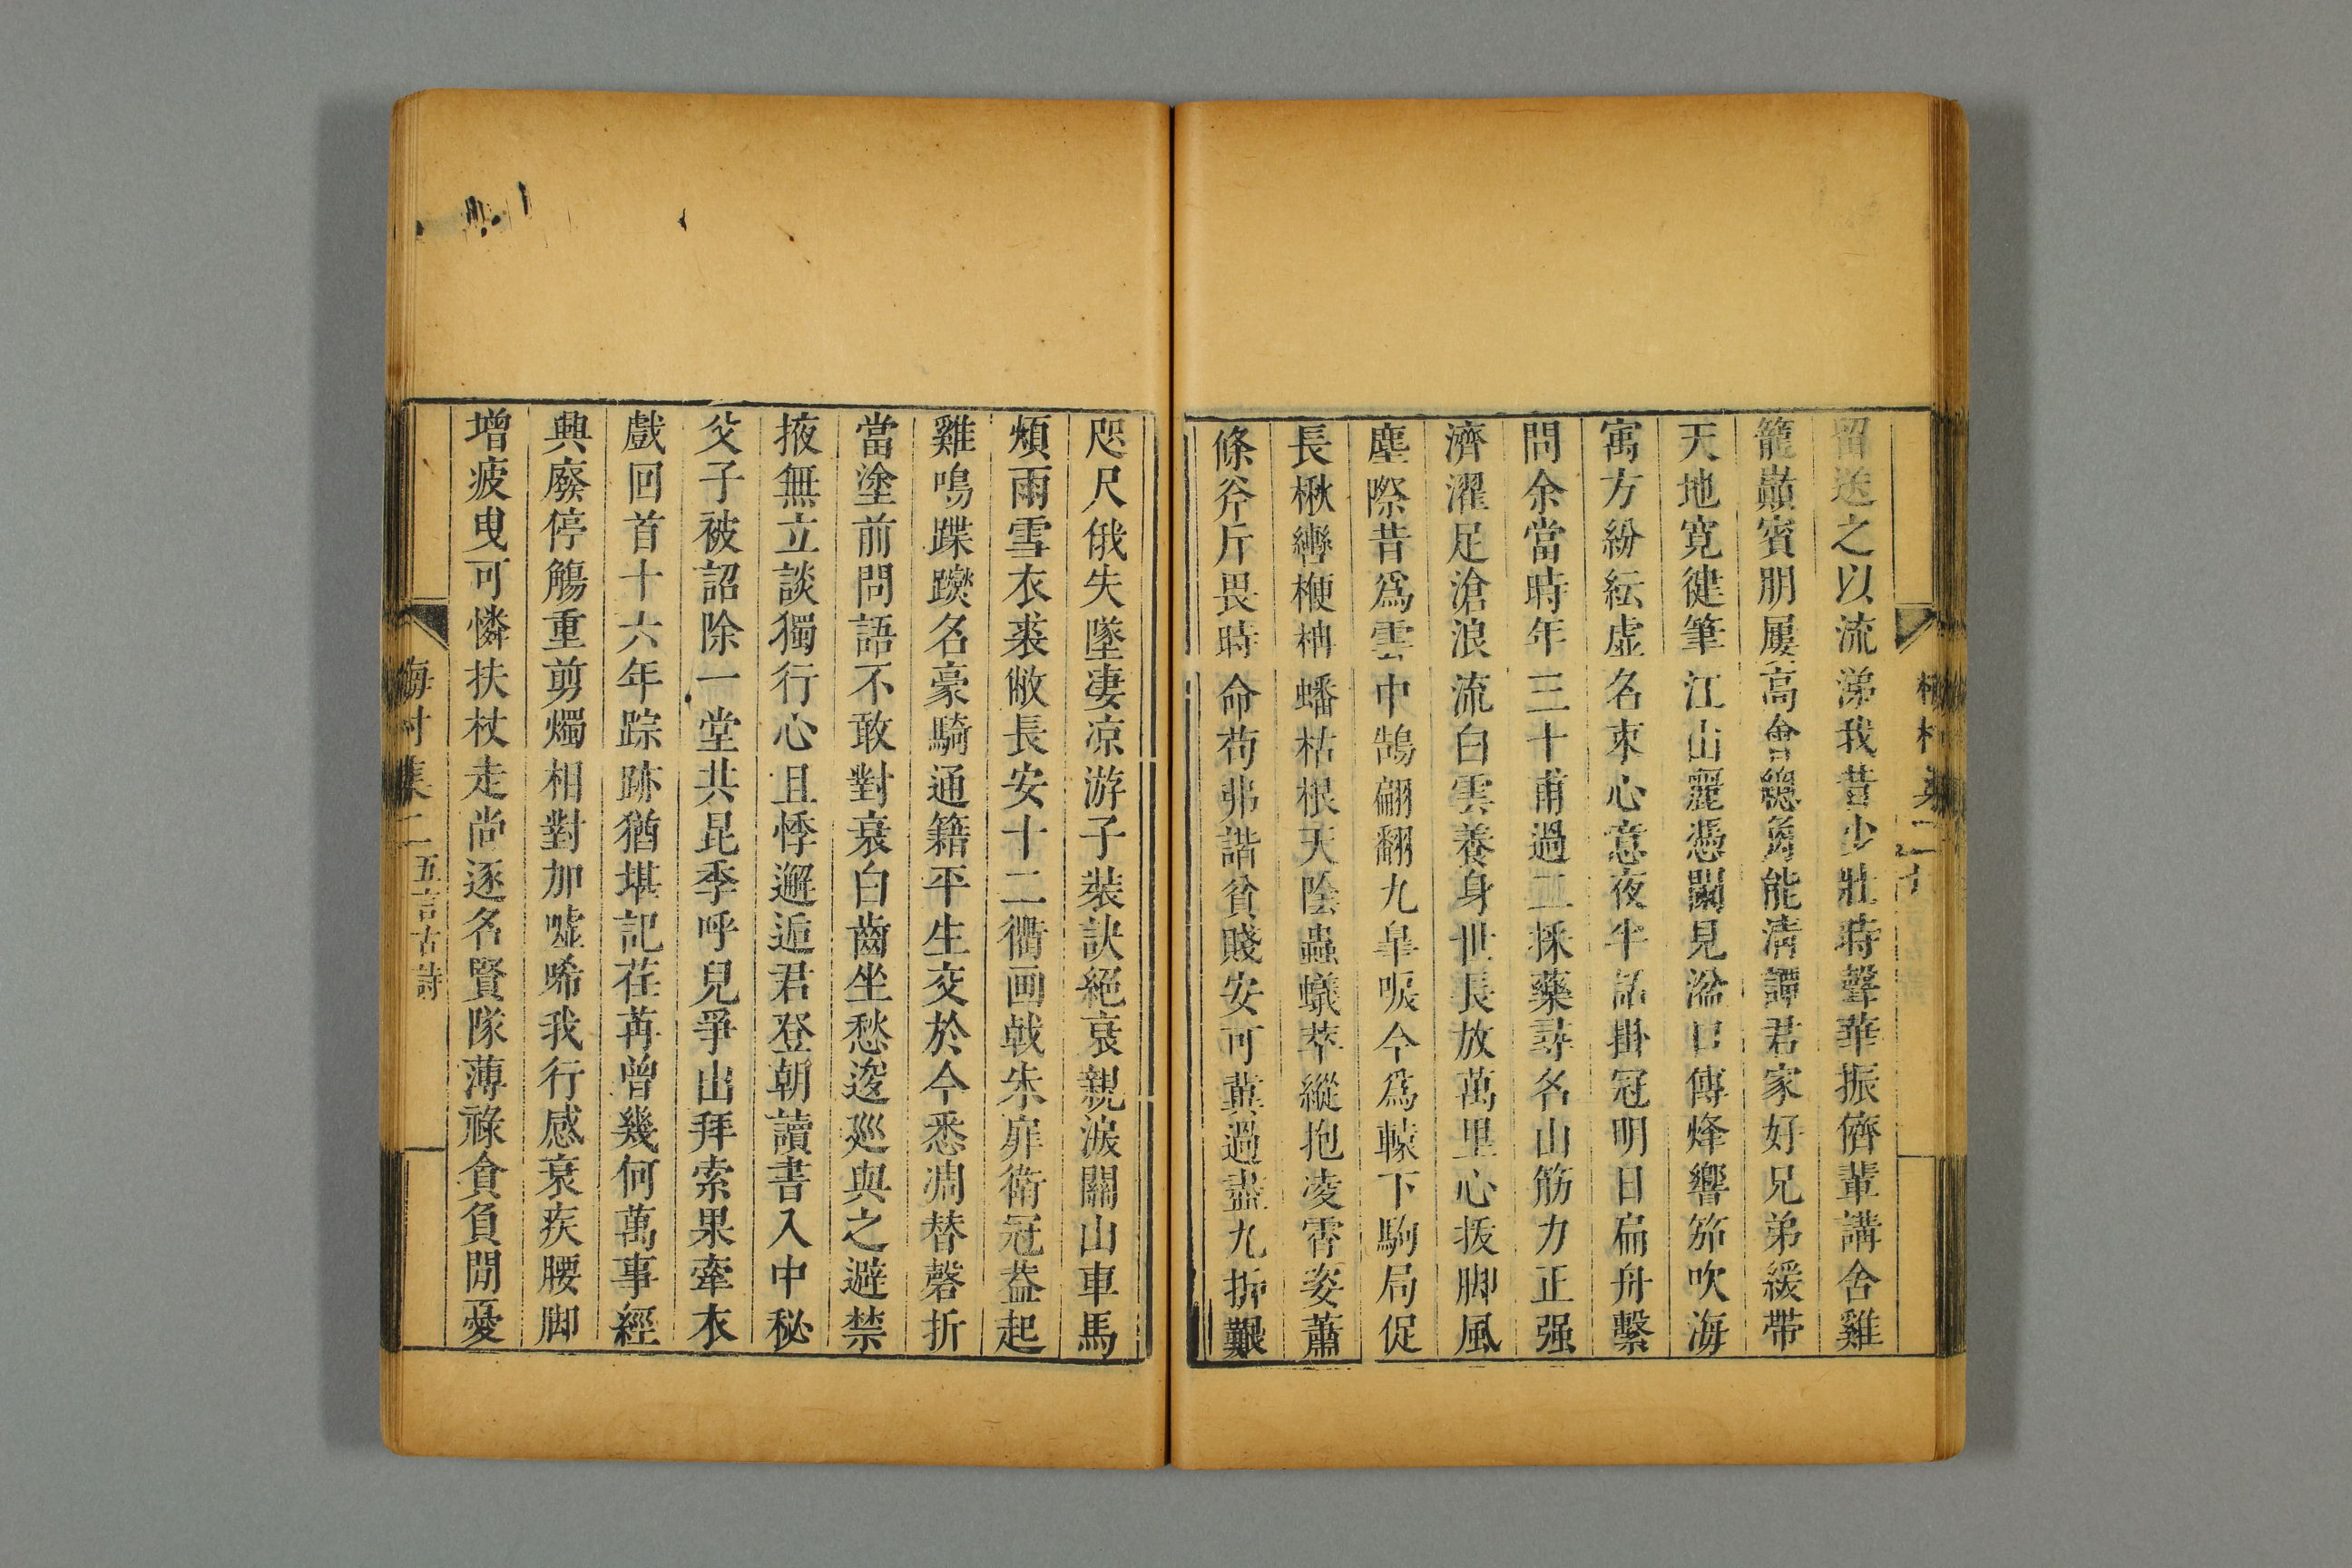 留送之以流涕我昔少壯時聲華振儕輩講舍雞
籠巔賓朋屢高會總角能清譚君家好兄弟緩帶
天地寬健筆江山麗憑闌見湓口傳烽響笳吹海
寓方紛紜虛名束心意夜半話掛冠明日扁舟繫
問余當時年三十甫過二採藥尋名山筋力正强
濟濯足滄浪流白雲養身世長放萬里心拔脚風
塵際昔爲雲中鵠翩翻九皐唳今爲轅下駒局促
長楸轡楩柟蟠枯根天陰蟲蟻萃縱抱凌霄姿蕭
條斧斤畏時命苟弗諧貧賤安可冀過盡九折艱
咫尺俄失墜凄凉游子裝訣絕衰親淚關山車馬
煩雨雪衣裘敝長安十二衢画戟朱扉衛冠葢起
雞鳴蹀躞名豪騎通籍平生交於今悉凋替磬折
當塗前問語不敢對衰白齒坐愁逡廵與之避禁
掖無立談獨行心且悸邂逅君登朝讀書入中秘
父子被詔除一堂共昆季呼兒爭出拜索果牽衣
戲回首十六年踪跡猶堪記荏苒曾幾何萬事經
興廢停觴重剪燭相對加噓唏我行感衰疾腰脚
增疲曳可憐扶杖走尚逐名賢隊薄祿貪負閒憂
梅村集二五言古詩